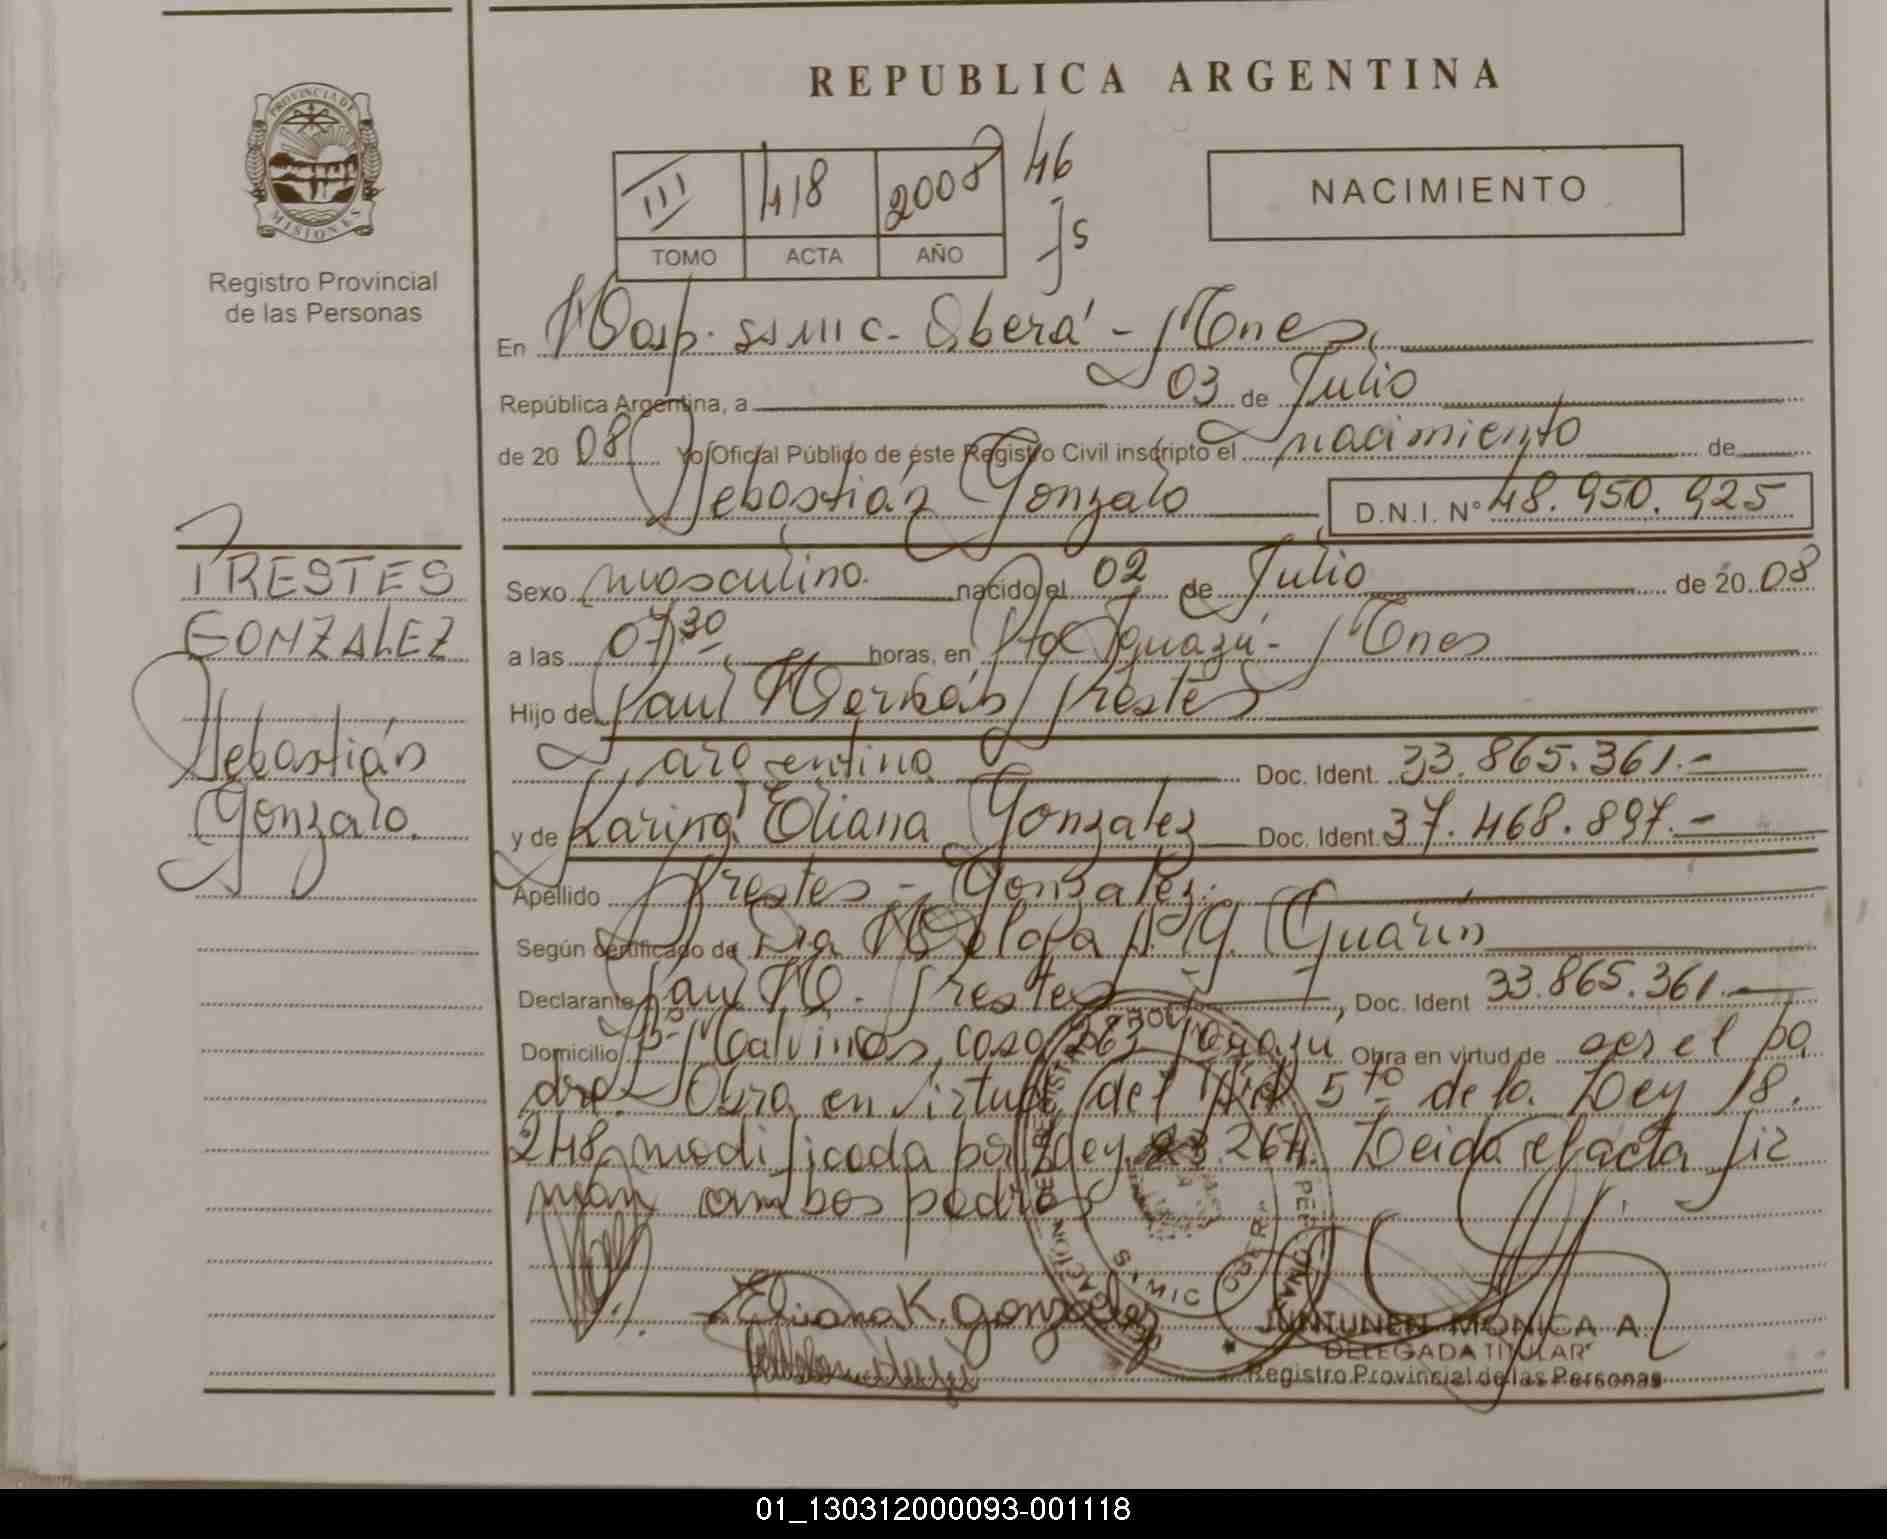 REPUBLICA ARGENTINA
PROVINCIA DE
MISIONES
Registro Provincial
de las Personas
III 418 2008 46
TOMO ACTA AÑO
NACIMIENTO
En Hosp. SAMIC - Oberá - Mnes,
República Argentina, a 03 de Julio
de 2008 Yo, Oficial Público de éste Registro Civil inscripto el nacimiento de
Sebastián Gonzalo D.N.I. Nº 48.950.925
PRESTES
GONZALEZ
Sebastián
Gonzalo.
Sexo masculino. nacido el 02 de Julio de 2008
a las 07,30 horas, en Pto Iguazú - Mnes
Hijo de Paul Hernán Prestes
argentino Doc. Ident. 33.865.361.-
y de Karina Eliana Gonzalez Doc. Ident. 37.468.897.-
Apellido Prestes - Gonzalez.
Según certificado de Dra G. Guarin
Declarante Paul H. Prestes , Doc. Ident 33.865.361.-
Domicilio Bº Malvinas, casa 263 Iguazú Obra en virtud de ser el pa
dre. Obra en virtud del Art 5to de la Ley 18.
248, modificada por Ley 23.264. Leida el acta fir
man ambos padres
Eliana K. Gonzalez
SAMIC OBERA
JUNTUNEN MONICA A.
DELEGADA TITULAR
Registro Provincial de las Personas
01_130312000093-001118